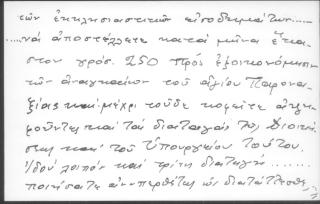 τῶν ἐκκλησιαστικῶν εἰσοδημάτων......
......νά ἀποστέλλετε κατά μῆνα ἕκα-
στον γρόσ. 250 πρός ἐξοικονόμησιν
τῶν ἀναγκαίων τοῦ ἁγίου Παροναξίας
καί μέχρι τοῦδε κωφεῖτε ἀψη-
φοῦντες καί τάς διαταγάς τῆς Διοική-
σεως καί τοῦ Ὑπουργείου τούτου.
Ἰδού λοιπόν καί τρίτη διαταγή..........
ποιήσατε ἀνυπερθέτως ὡς διατάττεσθε